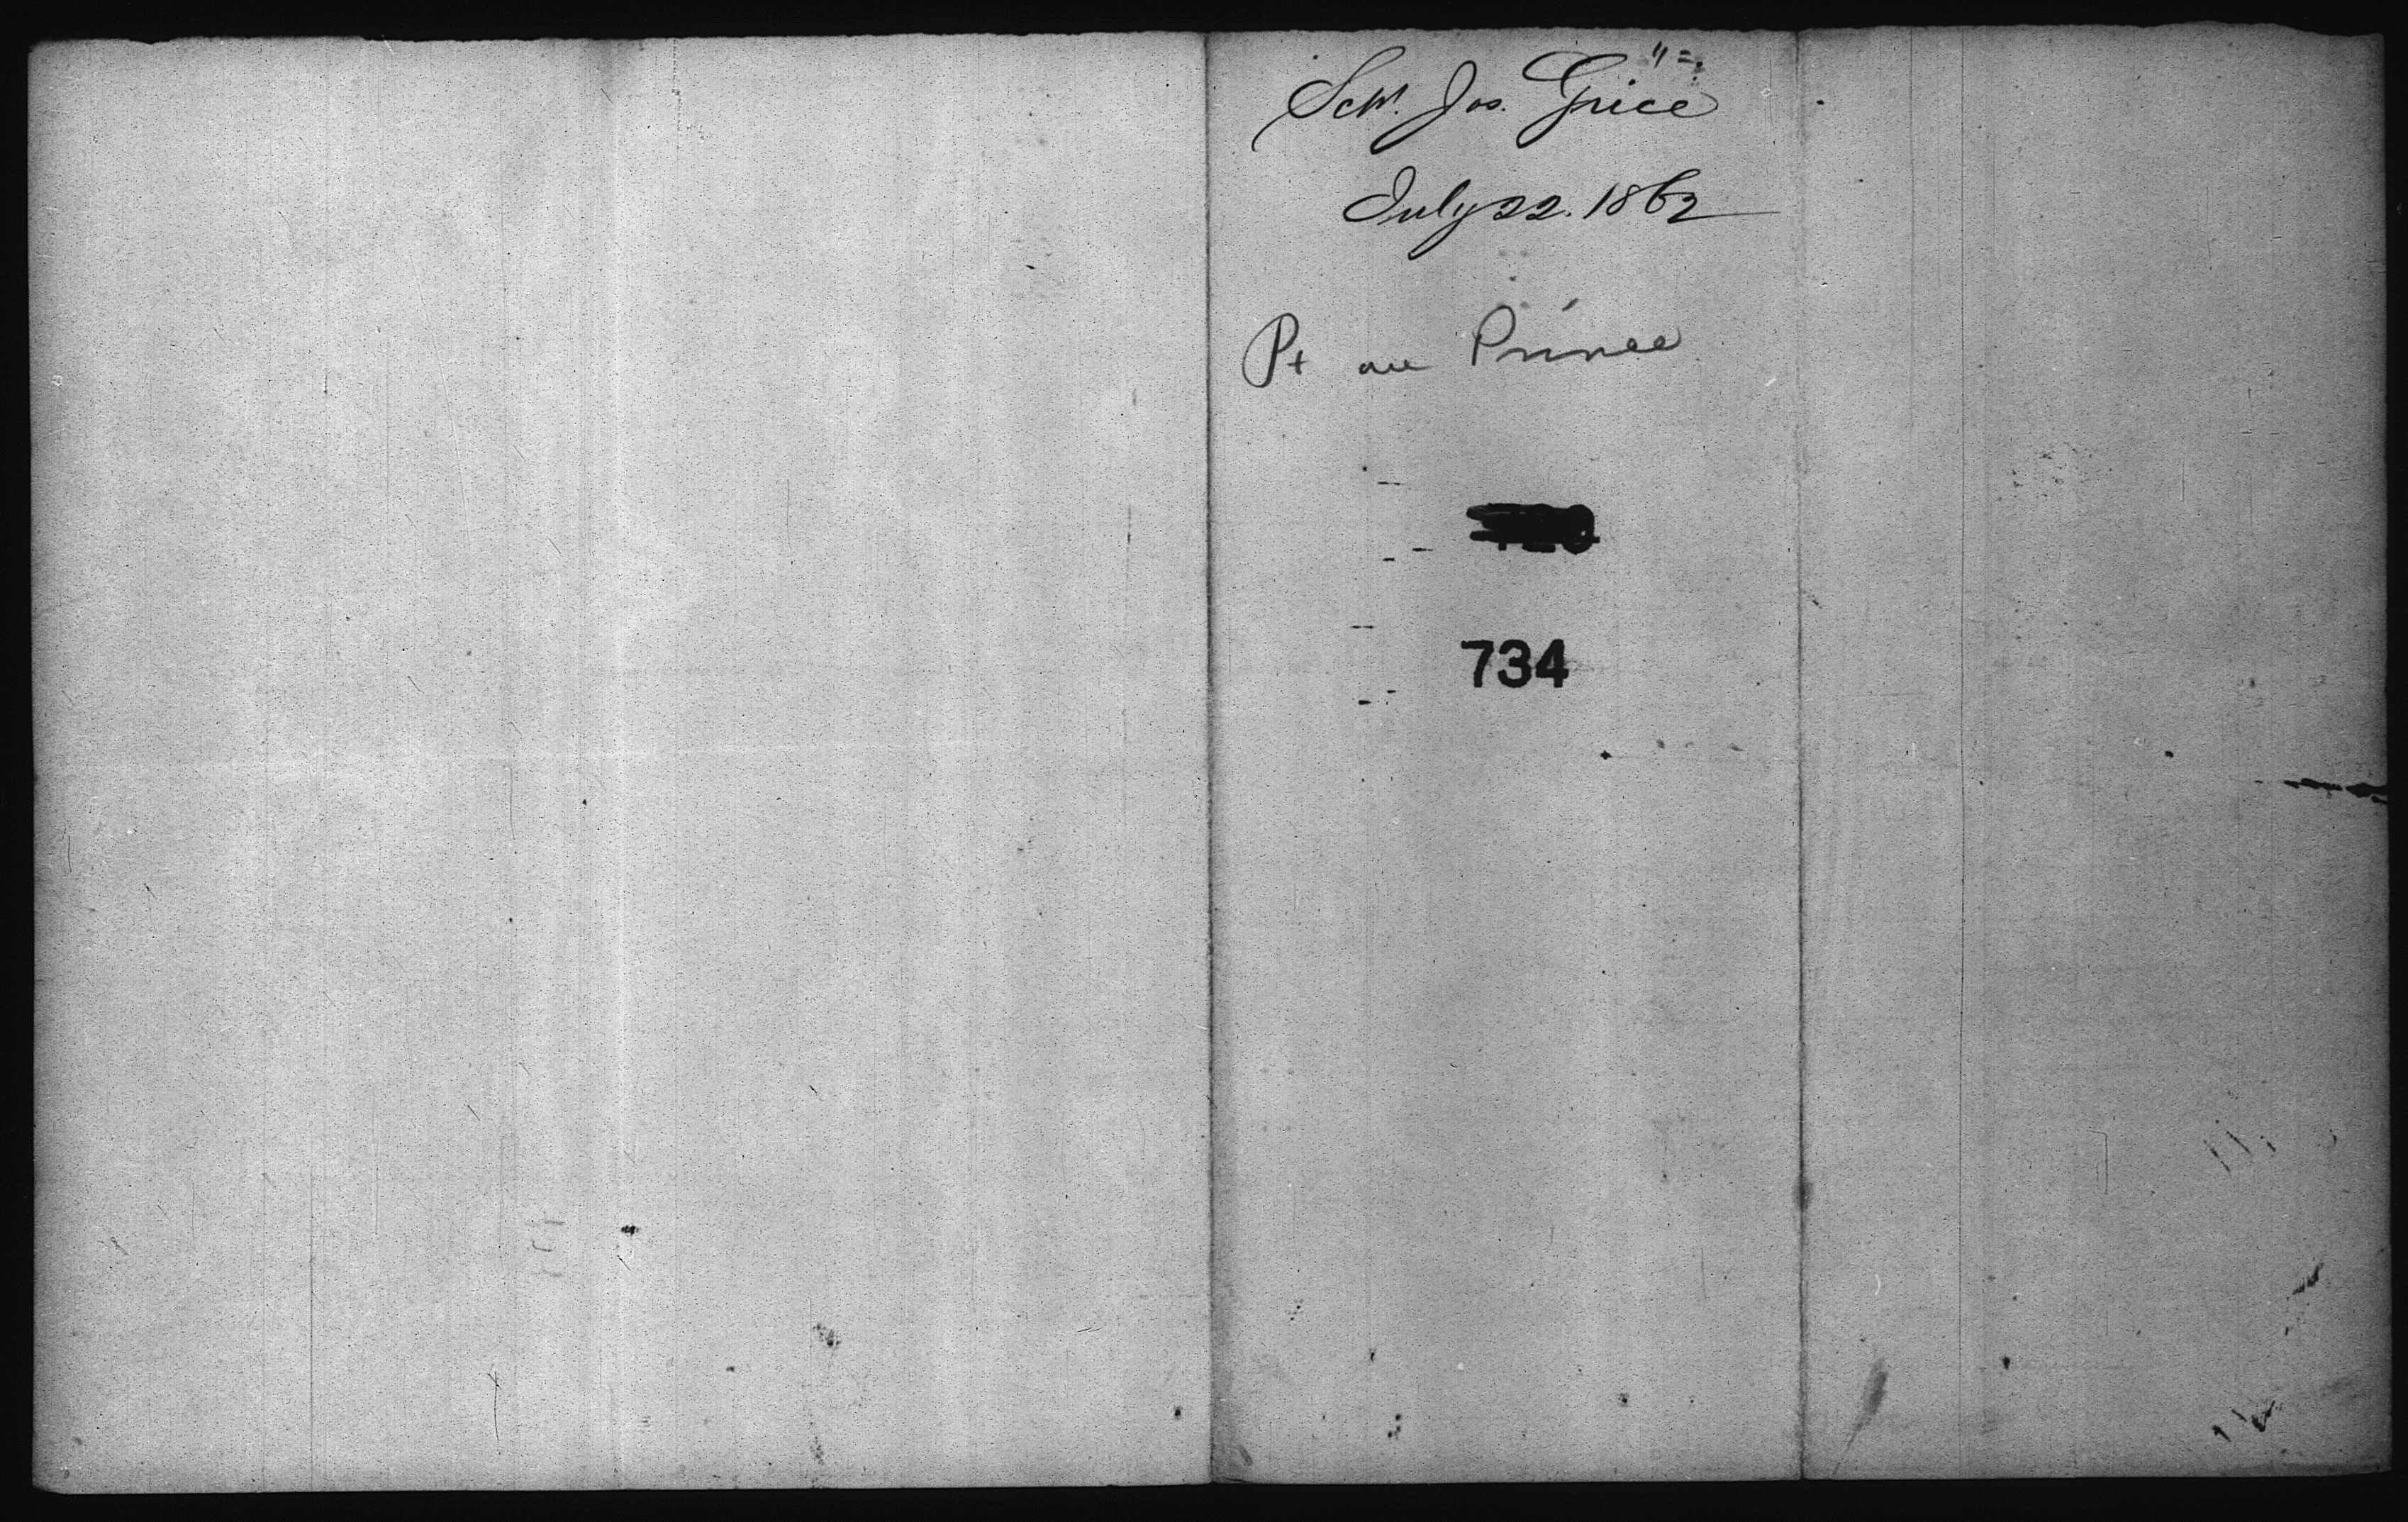 Schr. Jos. Grice
July 22. 1862
Pt au Prince
734